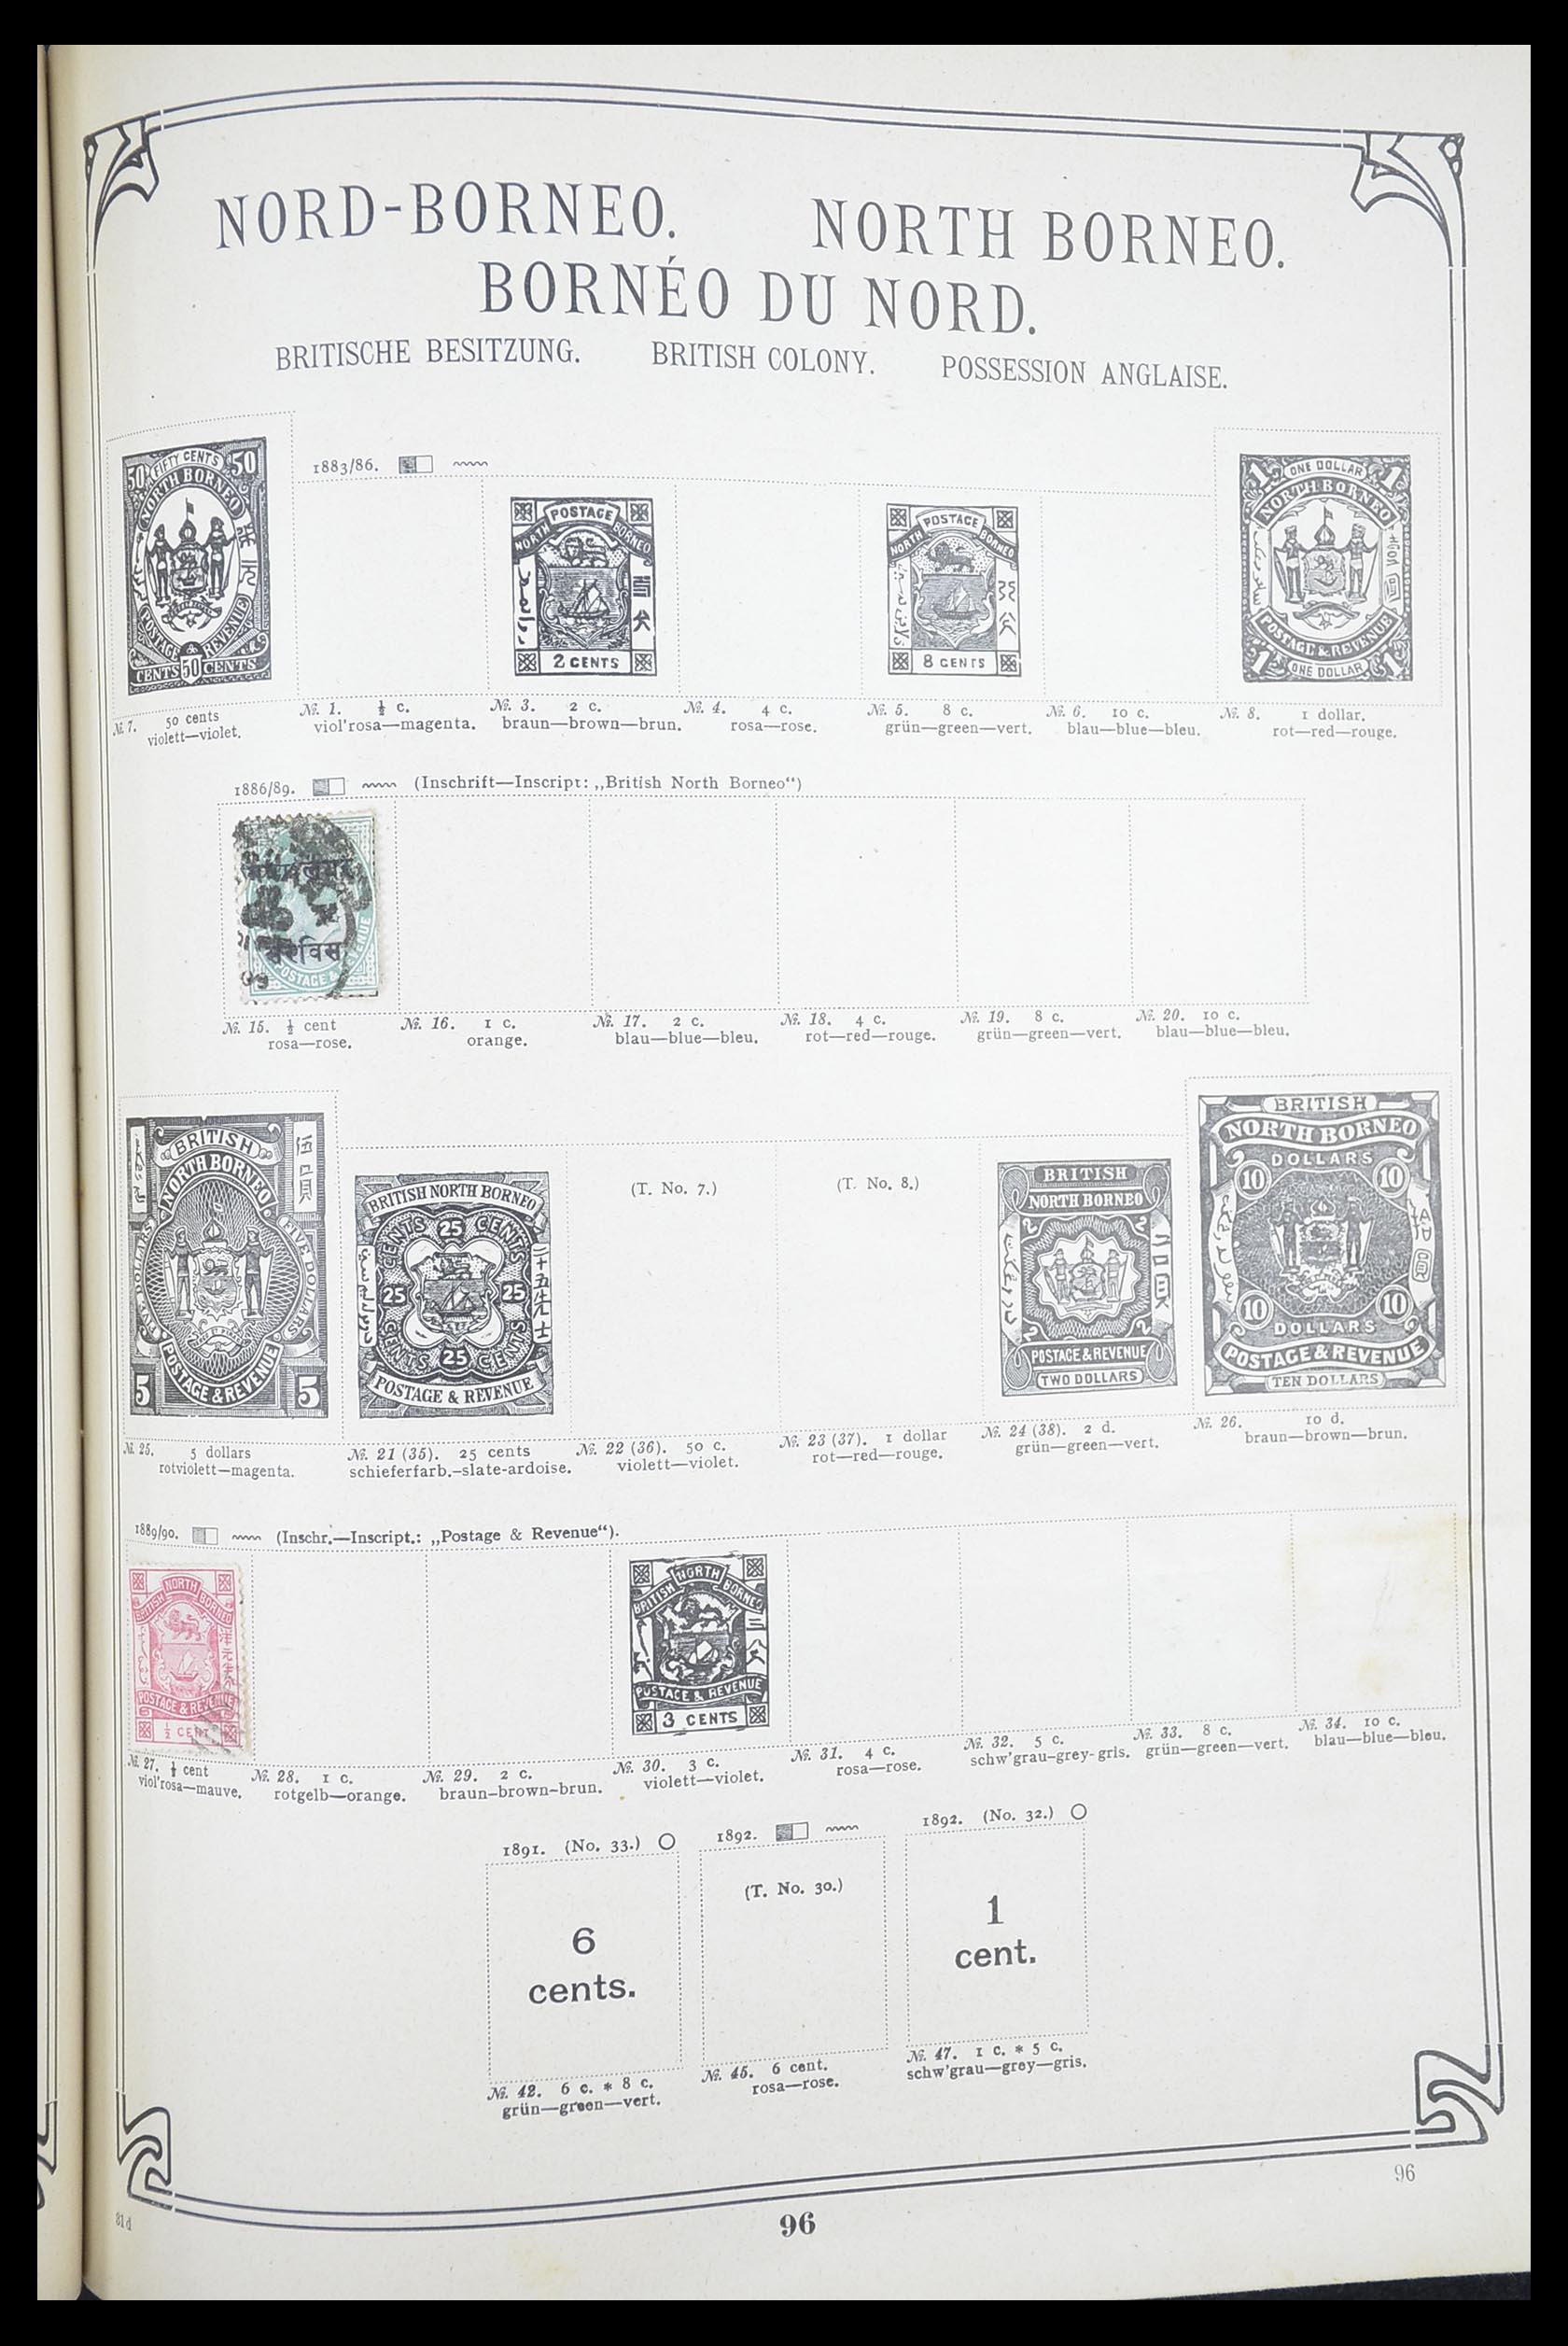 NORD-BORNEO. NORTH BORNEO.
BORNÉO DU NORD.
BRITISCHE BESITZUNG. BRITISH COLONY. POSSESSION ANGLAISE.
1883/86.
50 FIFTY CENTS 50
NORTH BORNEO
POSTAGE & REVENUE
CENTS 50 CENTS
POSTAGE
NORTH BORNEO
2 CENTS
POSTAGE
NORTH BORNEO
8 CENTS
1 ONE DOLLAR 1
NORTH BORNEO
POSTAGE & REVENUE
1 ONE DOLLAR 1
№. 7. 50 cents
violett—violet.
№. 1. ½ c.
viol'rosa—magenta.
№. 3. 2 c.
braun—brown—brun.
№. 4. 4 c.
rosa—rose.
№. 5. 8 c.
grün—green—vert.
№. 6. 10 c.
blau—blue—bleu.
№. 8. 1 dollar.
rot—red—rouge.
1886/89. (Inschrift—Inscript: „British North Borneo“)
सरविस
POSTAGE & REVENUE
№. 15. ½ cent
rosa—rose.
№. 16. 1 c.
orange.
№. 17. 2 c.
blau—blue—bleu.
№. 18. 4 c.
rot—red—rouge.
№. 19. 8 c.
grün—green—vert.
№. 20. 10 c.
blau—blue—bleu.
BRITISH
NORTH BORNEO
FIVE DOLLARS FIVE DOLLARS
POSTAGE & REVENUE
5 5
BRITISH NORTH BORNEO
CENTS 25 CENTS
25 25
CENTS 25 CENTS
POSTAGE & REVENUE
(T. No. 7.)
(T. No. 8.)
BRITISH
NORTH BORNEO
2 2
2 2
POSTAGE & REVENUE
TWO DOLLARS
BRITISH
NORTH BORNEO
DOLLARS
10 10
10 10
DOLLARS
POSTAGE & REVENUE
TEN DOLLARS
№. 25. 5 dollars
rotviolett—magenta.
№. 21 (35). 25 cents
schieferfarb.–slate-ardoise.
№. 22 (36). 50 c.
violett—violet.
№. 23 (37). 1 dollar
rot—red—rouge.
№. 24 (38). 2 d.
grün—green—vert.
№. 26. 10 d.
braun—brown—brun.
1889/90. (Inschr.—Inscript.: „Postage & Revenue“).
BRITISH NORTH BORNEO
POSTAGE & REVENUE
½ CENT
BRITISH NORTH BORNEO
POSTAGE & REVENUE
3 CENTS
№. 27. ½ cent
viol'rosa—mauve.
№. 28. 1 c.
rotgelb—orange.
№. 29. 2 c.
braun–brown–brun.
№. 30. 3 c.
violett—violet.
№. 31. 4 c.
rosa—rose.
№. 32. 5 c.
schw'grau—grey-gris.
№. 33. 8 c.
grün—green—vert.
№. 34. 10 c.
blau—blue—bleu.
1891. (No. 33.)
1892.
1892. (No. 32.)
6
cents.
(T. No. 30.)
1
cent.
№. 42. 6 c. * 8 c.
grün—green—vert.
№. 45. 6 cent.
rosa—rose.
№. 47. 1 c. * 5 c.
schw'grau—grey—gris.
96
31d
96